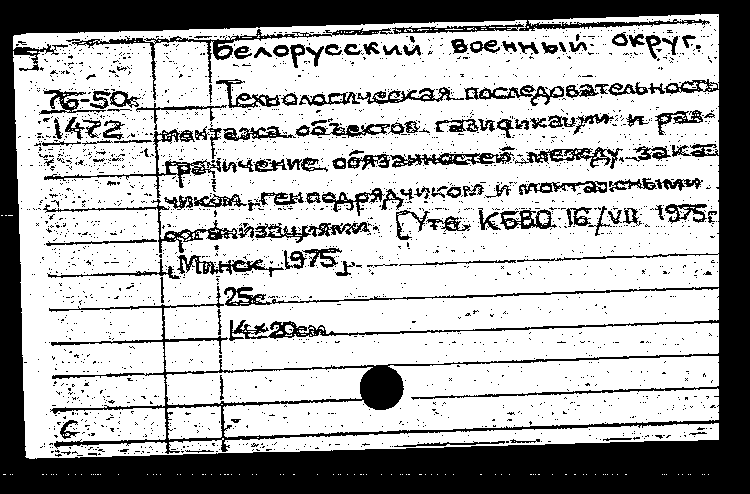 Белорусский военный округ.
76-50с
Технологическая последовательность
1472
монтажа объектов газификации и раз-
граничение обязанностей между заказ
чиком, генподрядчиком и монтажными
организациями. [Утв. КБВО 16/VII 1975г
[Минск, 1975].
25с.
14×20см.
6